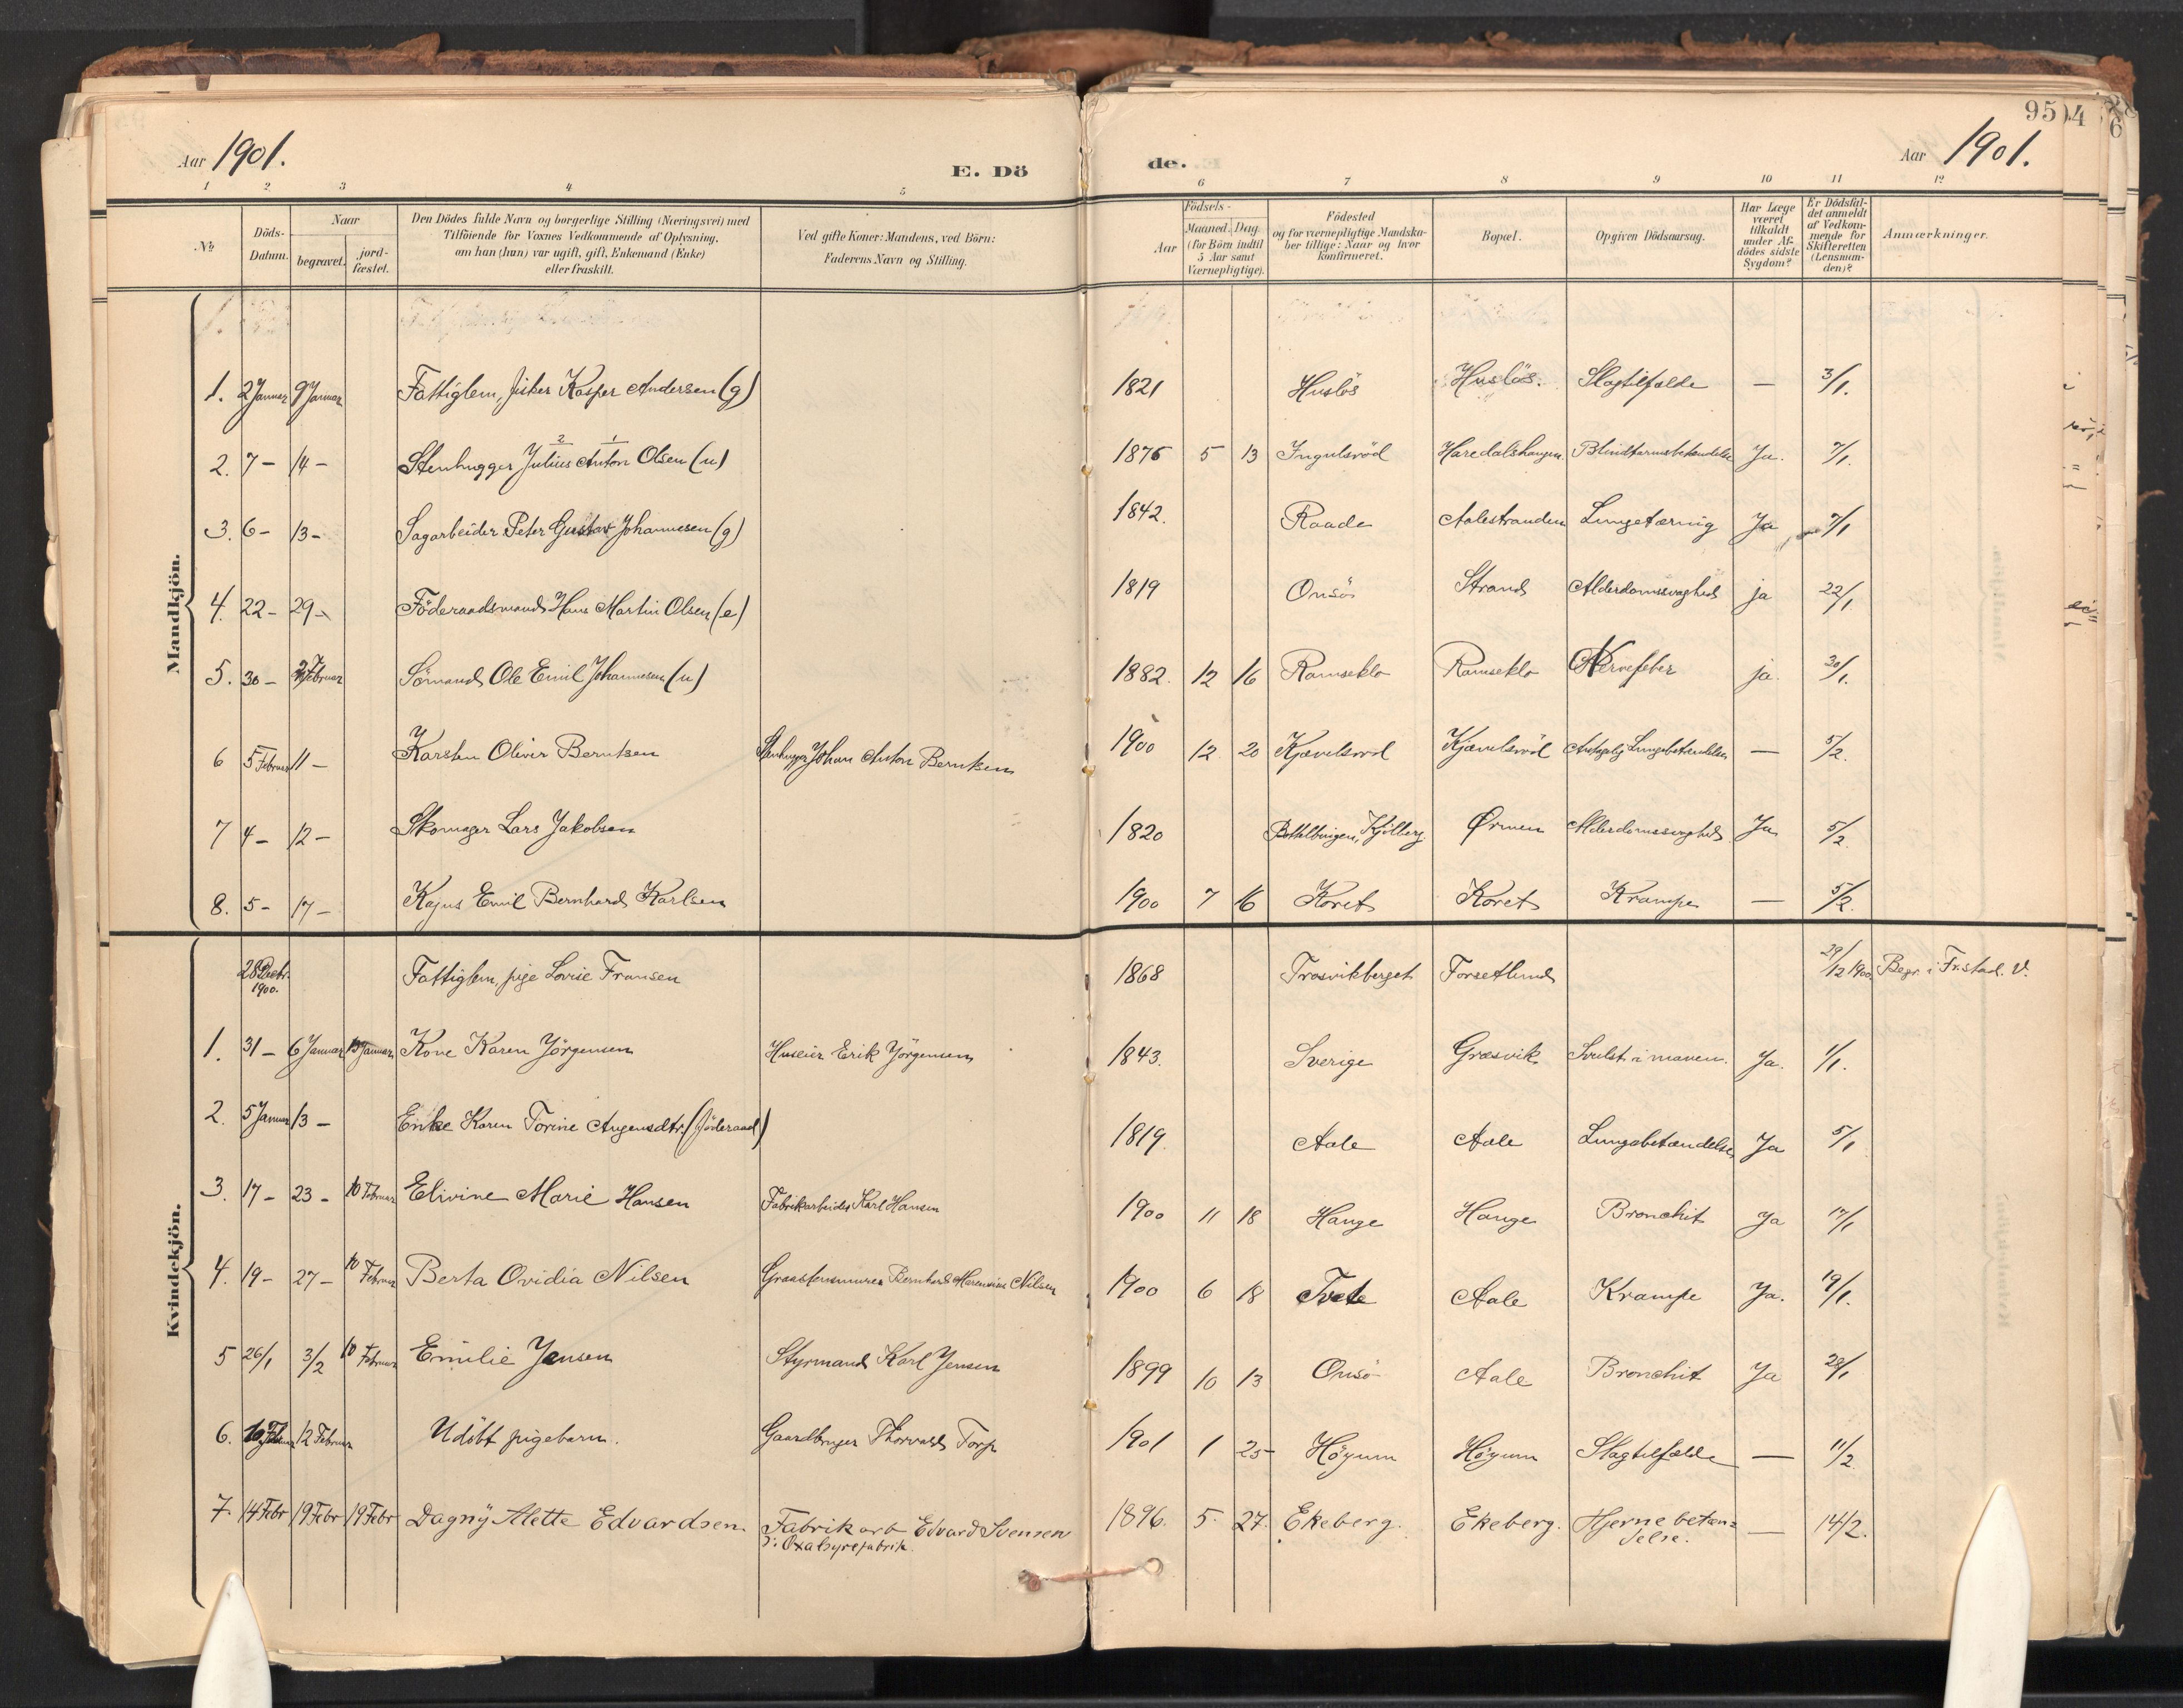 95
4
6
Aar 1901.
E. Dö
de.
Aar 1901.
1 2 3 4 5 6 7 8 9 10 11 12
№
Döds-
Datum.
Naar
begravet.
jord-
fæstet.
Den Dödes fulde Navn og borgerlige Stilling (Næringsvei) med
Tilföiende for Voxnes Vedkommende af Oplysning,
om han (hun) var ugift, gift, Enkemand (Enke)
eller fraskilt.
Ved gifte Koner: Mandens, ved Börn:
Faderens Navn og Stilling.
Födsels-
Aar
Maaned. Dag.
(for Börn indtil
5 Aar samt
Værnepligtige).
Födested
og for værnepligtige Mandska-
ber tillige: Naar og hvor
konfirmeret.
Bopæl.
Opgiven Dödsaarsag.
Har Læge
været
tilkaldt
under Af-
dödes sidste
Sygdom?
Er Dödsfal-
det anmeldt
af Vedkom-
mende for
Skifteretten
(Lensman-
den)?
Anmærkninger.
Mandkjön.
1. 2 Januar 9 Januar Fattiglem, fisker Kasper Andersen (g) 1821 Huslös Huslös. Slagtilfælde — 3/1.
2. 7 – 14 – Stenhugger Julius Anton Olsen (u) 1876 5 13 Ingulsröd Haredalshaugen Blindtarmsbetændelse Ja. 7/1.
2 1
3. 6 – 13 – Sagarbeider Peter Gustav Johannesen (g) 1842. Raade Aalestranden Lungetæring Ja 7/1
4. 22 – 29 – Föderaadsmand Hans Martin Olsen (e) 1819 Onsö Strand Alderdomssvaghed ja 22/1
5. 30 – Februar Sömand Ole Emil Johannesen (u) 1882. 12 16 Ramseklo Ramseklo Nervefeber ja. 30/1.
6 5 Februar 11 – Karsten Oliver Berntsen Stenhugger Johan Anton Berntsen 1900 12 20 Kjævelsröd Kjævelsröd Lungebetændelse — 5/2.
7 4 – 12 – Skomager Lars Jakobsen 1820 Kjölberg Ørmen Alderdomssvaghed Ja 5/2.
8. 5 – 17 – Kajus Emil Bernhard Karlsen 1900 7 16 Koret Koret Krampe — 5/2.
Kvindekjön.
28 Decbr. 1900. Fattiglem, pige Lovise Fransen 1868 Trosvikberget Forsetlund 29/12 1900 Begr. i Fr.stad. V.
1. 31 – 6 Januar 13 Januar Kone Karen Jörgensen Huseier Erik Jörgensen 1843. Sverige Græsvik Svulst i maven. Ja. 1/1.
2. 5 Januar 13 – Enke Karen Torine Augensdtr. (föderaad) 1819 Aale Aale Lungebetændelse Ja 5/1
3. 17 – 23 – 10 Februar Elivine Marie Hansen Fabrikarbeider Karl Hansen 1900 11 18 Hauge Hauge Bronchit Ja 17/1
4. 19 – 27 – 10 Februar Berta Ovidia Nilsen Graastensmurer Bernhard Nilsen 1900 6 18 Tvete Aale Krampe Ja. 19/1.
5 26/1 3/2 10 Februar Emilie Jensen Styrmand Karl Jensen 1899 10 13 Onsö Aale Bronchit Ja 28/1
6. 10 Februar 12 Februar Udöbt pigebarn. Gaardbruger Thorvald Torp 1901 1 25 Höyum Höyum Slagtilfælde — 11/2.
7. 14 Febr 19 Febr 19 Febr Dagny Alette Edvardsen Fabrikarb Edvard Svensen 1896. 5. 27. Ekeberg. Ekeberg. Hjernebetæn=
delse. — 14/2.
Oxalsyrefabrik.